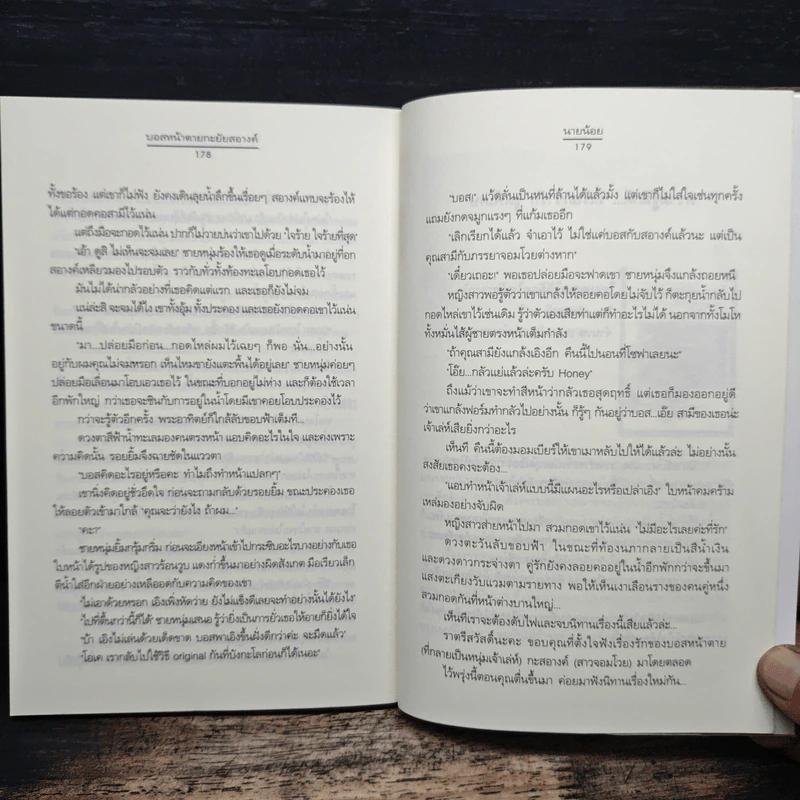 บอสหน้าตายกะยัยสอางค์
178
ทั้งขอร้อง แต่เขาก็ไม่ฟัง ยังคงเดินลุยน้ำลึกขึ้นเรื่อยๆ สอางค์แทบจะร้องไห้
ได้แต่กอดคอสามีไว้แน่น
แต่ถึงมือจะกอดไว้แน่น ปากก็ไม่วายบ่นว่าเขาไปด้วย "ใจร้าย ใจร้ายที่สุด"
"เอ้า ดูสิ ไม่เห็นจะจมเลย" ชายหนุ่มร้องให้เธอดูเมื่อระดับน้ำมาอยู่ที่อก
สอางค์เหลียวมองไปรอบตัว ราวกับทั่วทั้งท้องทะเลโอบกอดเธอไว้
มันไม่ได้น่ากลัวอย่างที่เธอคิดแต่แรก และเธอก็ยังไม่จม
แน่ล่ะสิ จะจมได้ไง เขาทั้งอุ้ม ทั้งประคอง และเธอยังกอดคอเขาไว้แน่น
ขนาดนี้
"มา...ปล่อยมือก่อน...กอดไหล่ผมไว้เฉยๆ ก็พอ นั่น...อย่างนั้น
อยู่กับผมคุณไม่จมหรอก เห็นไหมขายังแตะพื้นได้อยู่เลย" ชายหนุ่มค่อยๆ
ปล่อยมือเลื่อนมาโอบเอวเธอไว้ ในขณะที่บอกอยู่ไม่ห่าง และก็ต้องใช้เวลา
อีกพักใหญ่ กว่าเธอจะชินกับการอยู่ในน้ำโดยมีเขาคอยโอบประคองไว้
กว่าจะรู้ตัวอีกครั้ง พระอาทิตย์ก็ใกล้ลับขอบฟ้าเต็มที...
ดวงตาสีฟ้าน้ำทะเลมองคนตรงหน้า แอบคิดอะไรในใจ และคงเพราะ
ความคิดนั้น รอยยิ้มจึงฉายชัดในแววตา
"บอสคิดอะไรอยู่หรือคะ ทำไมถึงทำหน้าแปลกๆ"
เขานิ่งคิดอยู่ชั่วอึดใจ ก่อนจะถามกลับด้วยรอยยิ้ม ขณะประคองเธอ
ให้ลอยตัวเข้ามาใกล้ "คุณจะว่ายังไง ถ้าผม..."
"คะ?"
ชายหนุ่มยิ้มกรุ้มกริ่ม ก่อนจะเอียงหน้าเข้าไปกระซิบอะไรบางอย่างกับเธอ
ใบหน้าได้รูปของหญิงสาวร้อนวูบ แดงก่ำขึ้นมาอย่างผิดสังเกต มือเรียวเล็ก
ตีน้ำใส่อีกฝ่ายอย่างเหลืออดกับความคิดของเขา
"ไม่เอาด้วยหรอก เอิงเพิ่งหัดว่าย ยังไม่แข็งดีเลยจะทำอย่างนั้นได้ยังไง"
"ไปที่ตื้นกว่านี้ก็ได้" ชายหนุ่มเสนอ รู้ว่ายิ่งเป็นการยั่วเธอให้อายก็ยิ่งได้ใจ
"บ้า เอิงไม่เล่นด้วยเด็ดขาด บอสพาเอิงขึ้นฝั่งดีกว่าค่ะ จะมืดแล้ว"
"โอเค เรากลับไปใช้วิธี original กันที่บังกะโลก่อนก็ได้เนอะ"
นายน้อย
179
"บอส!" แว้ดลั่นเป็นหนที่ล้านได้แล้วมั้ง แต่เขาก็ไม่ใส่ใจเช่นทุกครั้ง
แถมยังกดจมูกแรงๆ ที่แก้มเธออีก
"เลิกเรียกได้แล้ว จำเอาไว้ ไม่ใช่แค่บอสกับสอางค์แล้วนะ แต่เป็น
คุณสามีกับภรรยาจอมโวยต่างหาก"
"เดี๋ยวเถอะ!" พอเธอปล่อยมือจะฟาดเขา ชายหนุ่มจึงแกล้งถอยหนี
หญิงสาวพอรู้ตัวว่าเขาแกล้งให้ลอยคอโดยไม่จับไว้ ก็ตะกุยน้ำกลับไป
กอดไหล่เขาไว้เช่นเดิม รู้ว่าตัวเองเสียท่าแต่ก็ทำอะไรไม่ได้ นอกจากทั้งโมโห
ทั้งหมั่นไส้ผู้ชายตรงหน้าเต็มกำลัง
"ถ้าคุณสามียังแกล้งเอิงอีก คืนนี้ไปนอนที่โซฟาเลยนะ"
"โอ๊ย...กลัวแย่แล้วล่ะครับ Honey"
ถึงแม้ว่าเขาจะทำสีหน้าว่ากลัวเธอสุดฤทธิ์ แต่เธอก็มองออกอยู่ดี
ว่าเขาแกล้งฟอร์มทำกลัวไปอย่างนั้น ก็รู้ๆ กันอยู่ว่าบอส...เอ๊ย สามีของเธอน่ะ
เจ้าเล่ห์เสียยิ่งกว่าอะไร
เห็นที คืนนี้ต้องมอมเบียร์ให้เขาเมาหลับไปให้ได้แล้วล่ะ ไม่อย่างนั้น
สงสัยเธอคงจะต้อง...
"แอบทำหน้าเจ้าเล่ห์แบบนี้มีแผนอะไรหรือเปล่าเอิง" ใบหน้าคมคร้าม
เหล่มองอย่างจับผิด
หญิงสาวส่ายหน้าไปมา สวมกอดเขาไว้แน่น "ไม่มีอะไรเลยค่ะที่รัก"
ดวงตะวันลับขอบฟ้า ในขณะที่ท้องนภากลายเป็นสีน้ำเงิน
และดวงดาวกระจ่างตา คู่รักยังคงลอยคออยู่ในน้ำอีกพักกว่าจะขึ้นมา
แสงตะเกียงวับแวมตามรายทาง พอให้เห็นเงาเลือนรางของคนคู่หนึ่ง
สวมกอดกันที่หน้าต่างบานใหญ่...
เห็นทีเราจะต้องดับไฟและจบนิทานเรื่องนี้เสียแล้วล่ะ...
ราตรีสวัสดิ์นะคะ ขอบคุณที่ตั้งใจฟังเรื่องรักของบอสหน้าตาย
(ที่กลายเป็นหนุ่มเจ้าเล่ห์) กะสอางค์ (สาวจอมโวย) มาโดยตลอด
ไว้พรุ่งนี้ตอนคุณตื่นขึ้นมา ค่อยมาฟังนิทานเรื่องใหม่กัน...